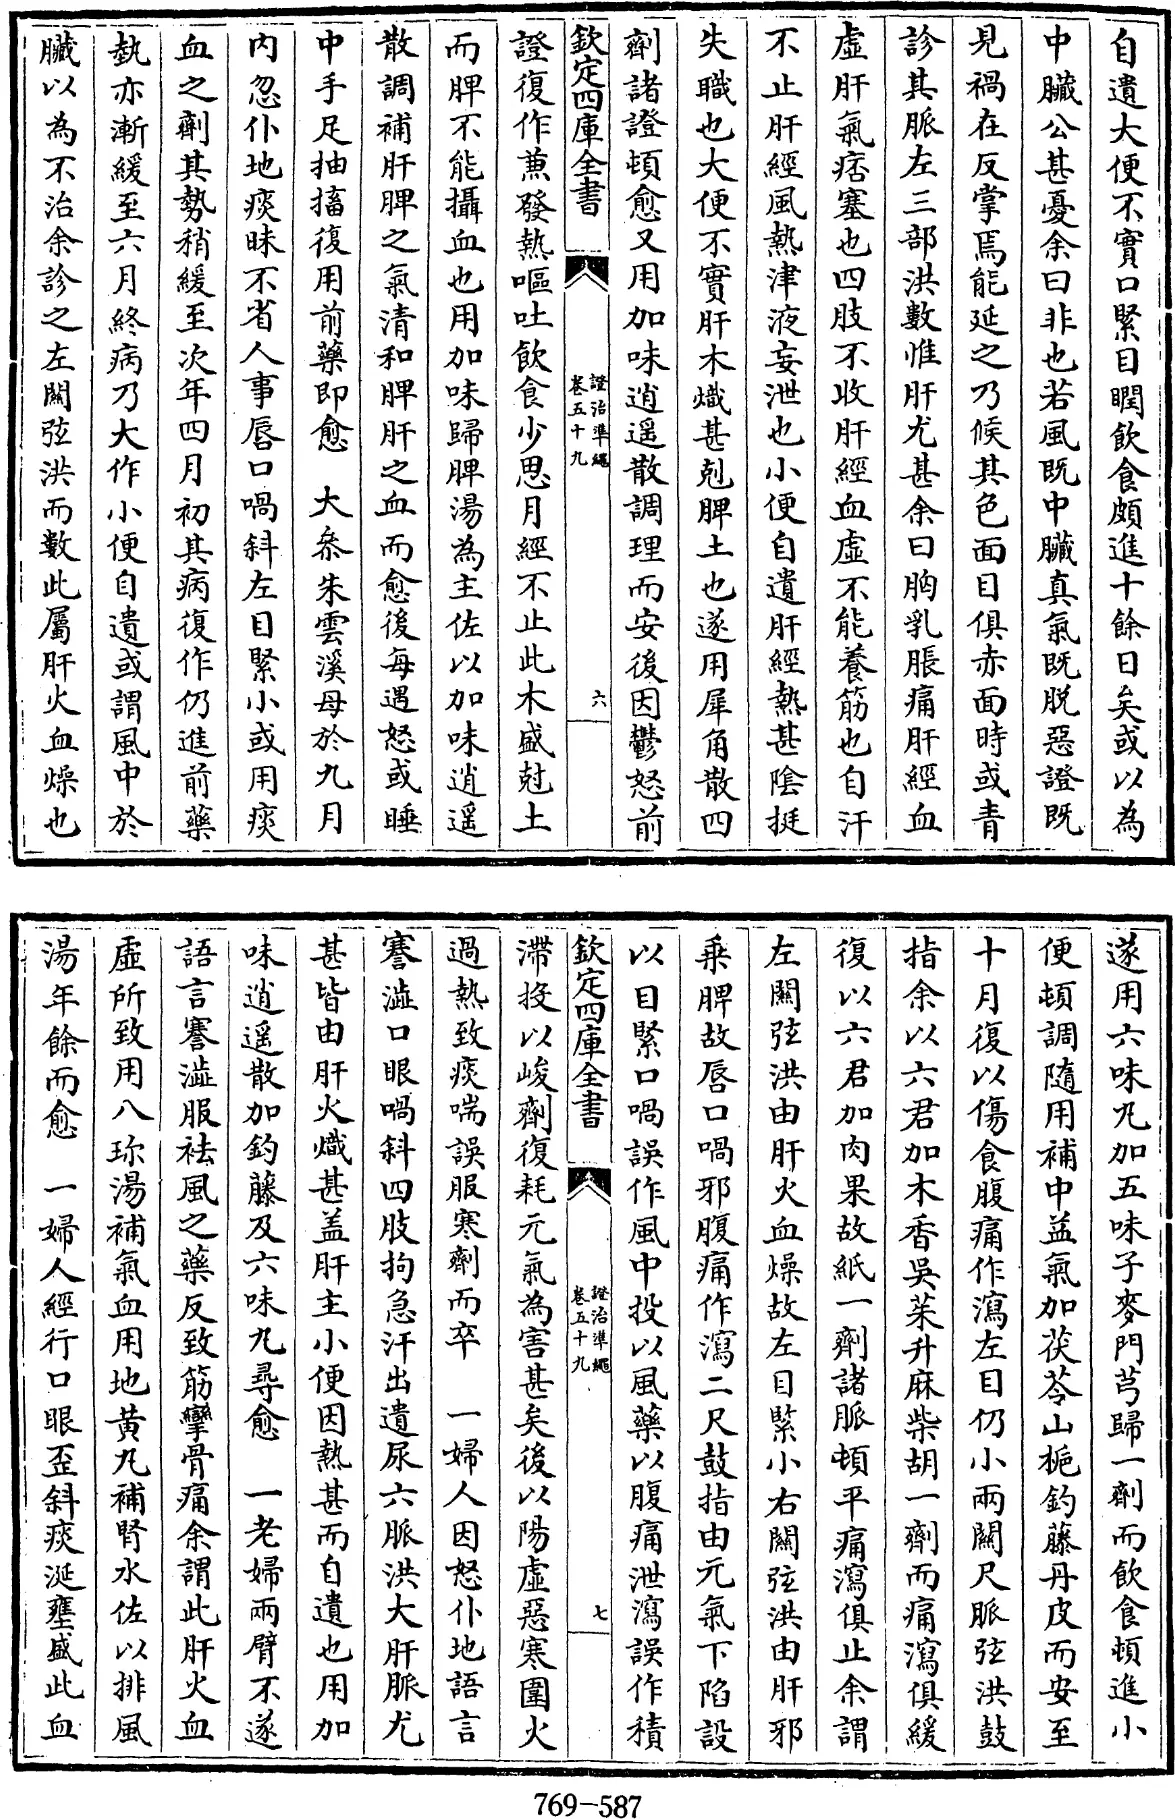 自遺大便不實口緊目瞤飲食頗進十餘日矣或以為
中臟公甚憂余曰非也若風既中臟真氣既脱惡證既
見禍在反掌焉能延之乃候其色面目俱赤面時或青
診其脈左三部洪數惟肝尤甚余曰胸乳脹痛肝經血
虛肝氣痞塞也四肢不收肝經血虛不能養筋也自汗
不止肝經風熱津液妄泄也小便自遺肝經熱甚陰挺
失職也大便不實肝木熾甚剋脾土也遂用犀角散四
劑諸證頓愈又用加味逍遥散調理而安後因鬱怒前
欽定四庫全書
證治準繩
卷五十九
六
證復作兼發熱嘔吐飲食少思月經不止此木盛尅土
而脾不能攝血也用加味歸脾湯為主佐以加味逍遥
散調補肝脾之氣清和脾肝之血而愈後每遇怒或睡
中手足抽搐復用前藥即愈　大叅朱雲溪母於九月
内忽仆地痰昧不省人事唇口喎斜左目緊小或用痰
血之劑其勢稍緩至次年四月初其病復作仍進前藥
勢亦漸緩至六月終病乃大作小便自遺或謂風中於
臟以為不治余診之左關弦洪而數此屬肝火血燥也
遂用六味丸加五味子麥門芎歸一劑而飲食頓進小
便頓調隨用補中益氣加茯苓山梔釣藤丹皮而安至
十月復以傷食腹痛作瀉左目仍小兩關尺脈弦洪鼓
指余以六君加木香吳茱升麻柴胡一劑而痛瀉俱緩
復以六君加肉果故紙一劑諸脈頓平痛瀉俱止余謂
左關弦洪由肝火血燥故左目緊小右關弦洪由肝邪
乘脾故唇口喎邪腹痛作瀉二尺鼓指由元氣下陷設
以目緊口喎誤作風中投以風藥以腹痛泄瀉誤作積
欽定四庫全書
證治準繩
卷五十九
七
滯投以峻劑復耗元氣為害甚矣後以陽虛惡寒圍火
過熱致痰喘誤服寒劑而卒　一婦人因怒仆地語言
謇澁口眼喎斜四肢拘急汗出遺尿六脈洪大肝脈尤
甚皆由肝火熾甚盖肝主小便因熱甚而自遺也用加
味逍遥散加釣藤及六味丸尋愈　一老婦兩臂不遂
語言謇澁服袪風之藥反致筋攣骨痛余謂此肝火血
虛所致用八珎湯補氣血用地黄丸補腎水佐以排風
湯年餘而愈　一婦人經行口眼歪斜痰涎壅盛此血
769-587